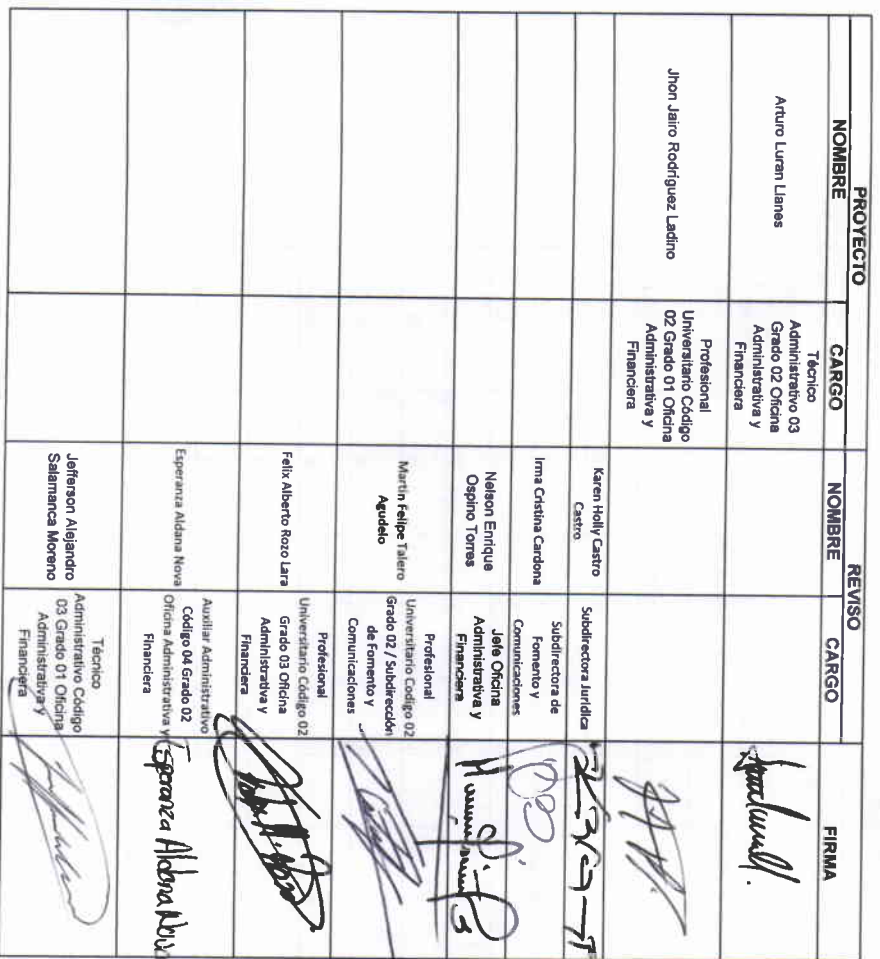 PROYECTO
REVISO
NOMBRE
CARGO
NOMBRE
CARGO
FIRMA
Arturo Luran Llanes
Técnico
Administrativo 03
Grado 02 Oficina
Administrativa y
Financiera
Jhon Jairo Rodríguez Ladino
Profesional
Universitario Código
02 Grado 01 Oficina
Administrativa y
Financiera
Karen Holly Castro
Castro
Subdirectora Jurídica
Irma Cristina Cardona
Subdirectora de
Fomento y
Comunicaciones
Nelson Enrique
Ospino Torres
Jefe Oficina
Administrativa y
Financiera
Martin Felipe Talero
Agudelo
Profesional
Universitario Codigo 02
Grado 02 / Subdirección
de Fomento y
Comunicaciones
Felix Alberto Rozo Lara
Profesional
Universitario Código 02
Grado 03 Oficina
Administrativa y
Financiera
Esperanza Aldana Nova
Auxiliar Administrativo
Código 04 Grado 02
Oficina Administrativa y
Financiera
Esperanza Aldana Nova
Jefferson Alejandro
Salamanca Moreno
Técnico
Administrativo Código
03 Grado 01 Oficina
Administrativa y
Financiera